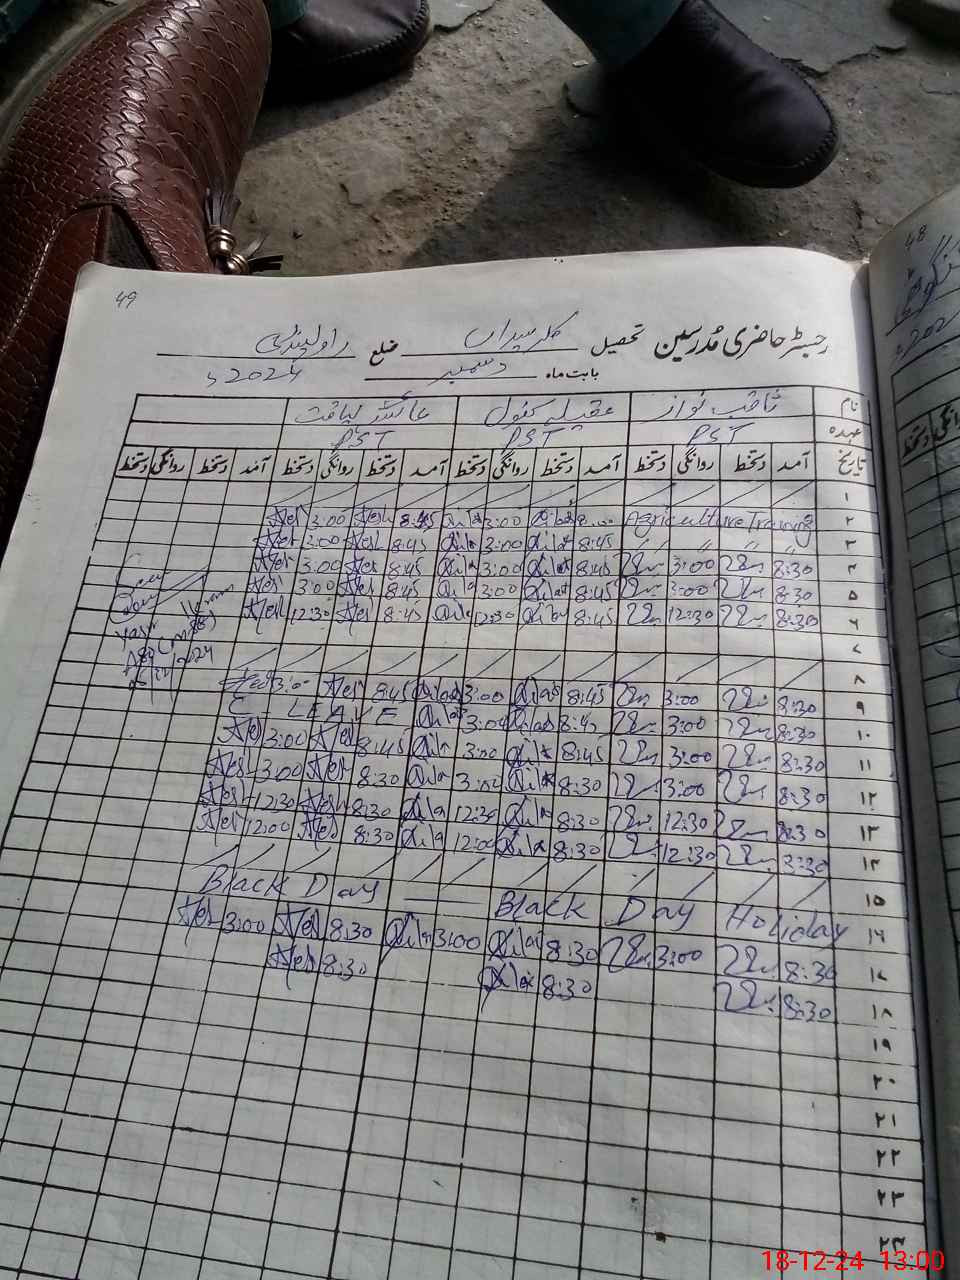 49
48
رجسٹر حاضری مُدرسین تحصیل کلر سیداں ضلع راولپنڈی
بابت ماہ دسمبر 2024ء
نام ثاقب نواز عقیلہ کنول عائشہ لیاقت
عہدہ PST PST PST
تاریخ آمد دستخط روانگی دستخط آمد دستخط روانگی دستخط آمد دستخط روانگی دستخط آمد دستخط روانگی دستخط
۱
۲ Agriculture Training 8:00 3:00 8:45 3:00
۳ " " " " 8:45 3:00 8:45 3:00
۴ 8:30 3:00 8:45 3:00 8:45 3:00
۵ 8:30 3:00 8:45 3:00 8:45 3:00
۶ 8:30 12:30 8:45 12:30 8:45 12:30
۷
۸
۹ 8:30 3:00 8:45 3:00 8:45 3:00
۱۰ 8:30 3:00 8:45 3:00 C LEAVE
۱۱ 8:30 3:00 8:45 3:00 8:45 3:00
۱۲ 8:30 3:00 8:30 3:00 8:30 3:00
۱۳ 8:30 12:30 8:30 12:30 8:30 12:30
۱۴ 8:30 12:30 8:30 12:00 8:30 12:00
۱۵
۱۶ Black Day —— Black Day Holiday
۱۷ 8:30 3:00 8:30 3:00 8:30 3:00
۱۸ 8:30 8:30 8:30
۱۹
۲۰
۲۱
۲۲
۲۳
۲۴
18-12-24 13:00